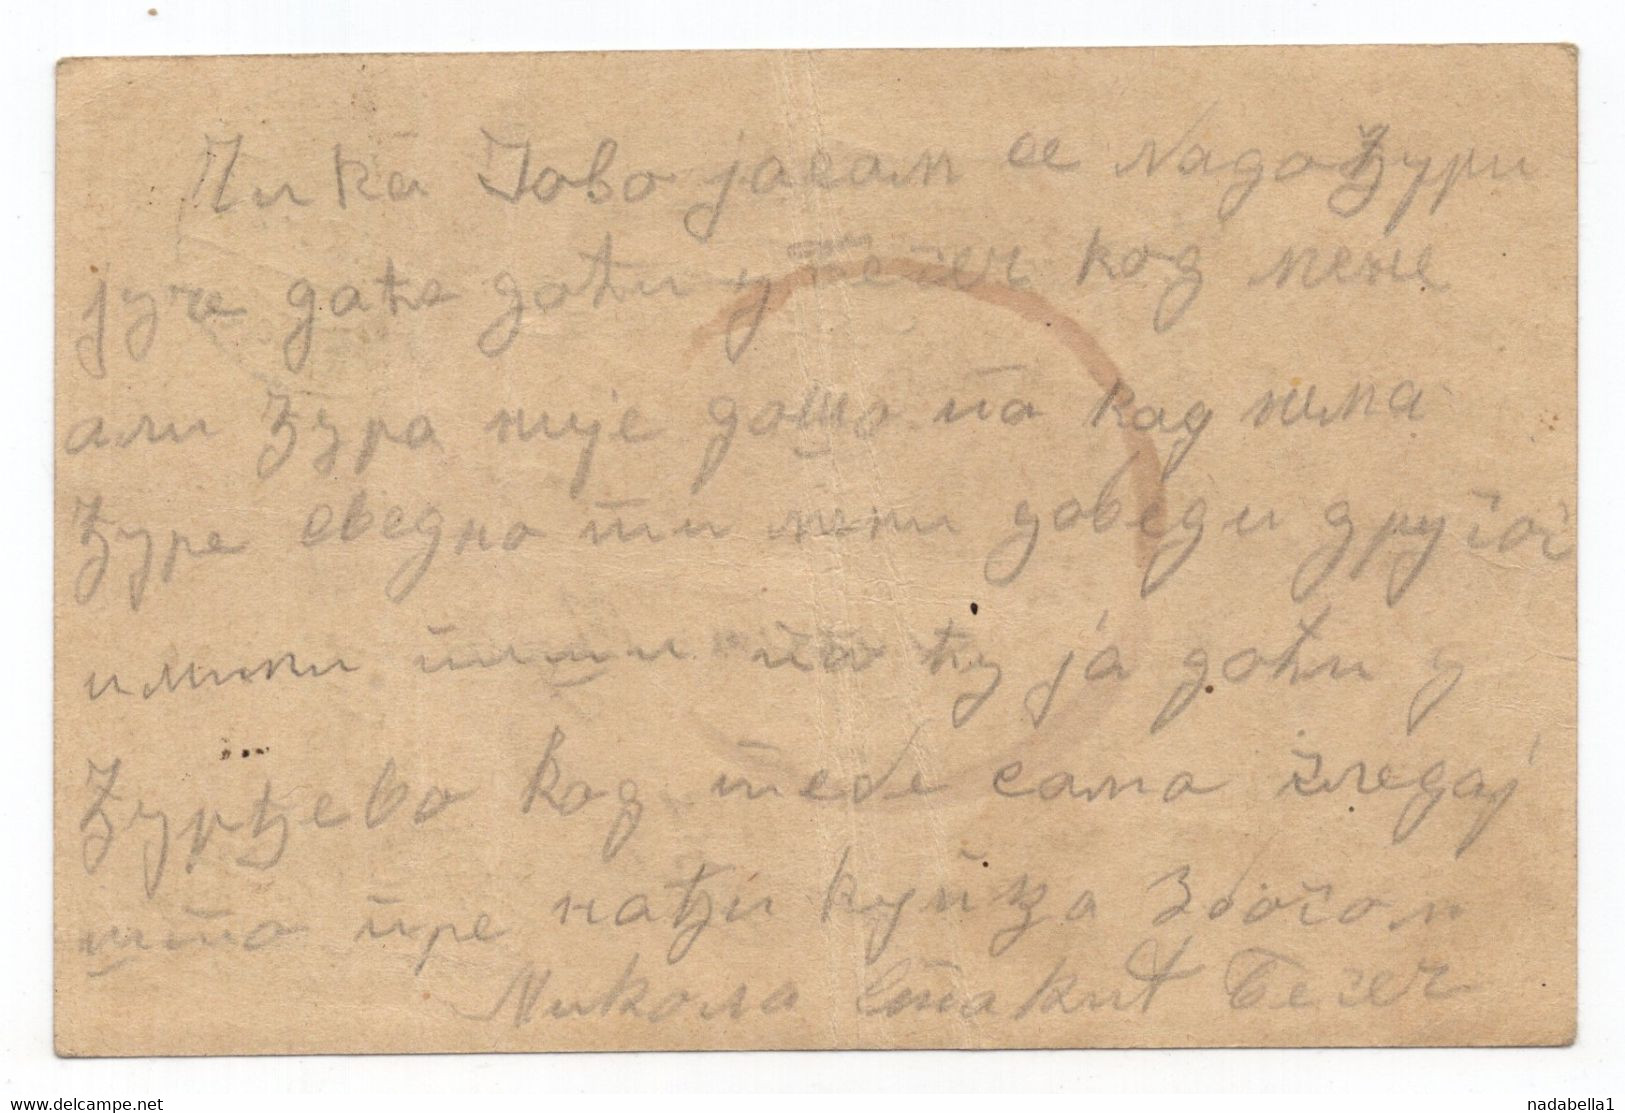 Чика Јово јасам се надо Ђури
јуче даће доћи у Бегеч код мене
али Ђура није дошо па кад нима
Ђуре сведно ти мени доведи другог
имени пиши по ћу ја доћи у
Ђурђево код тебе само гледај
што пре нађи купца збогом
Никола Стакић Бегеч
www.delcampe.net
nadabella1